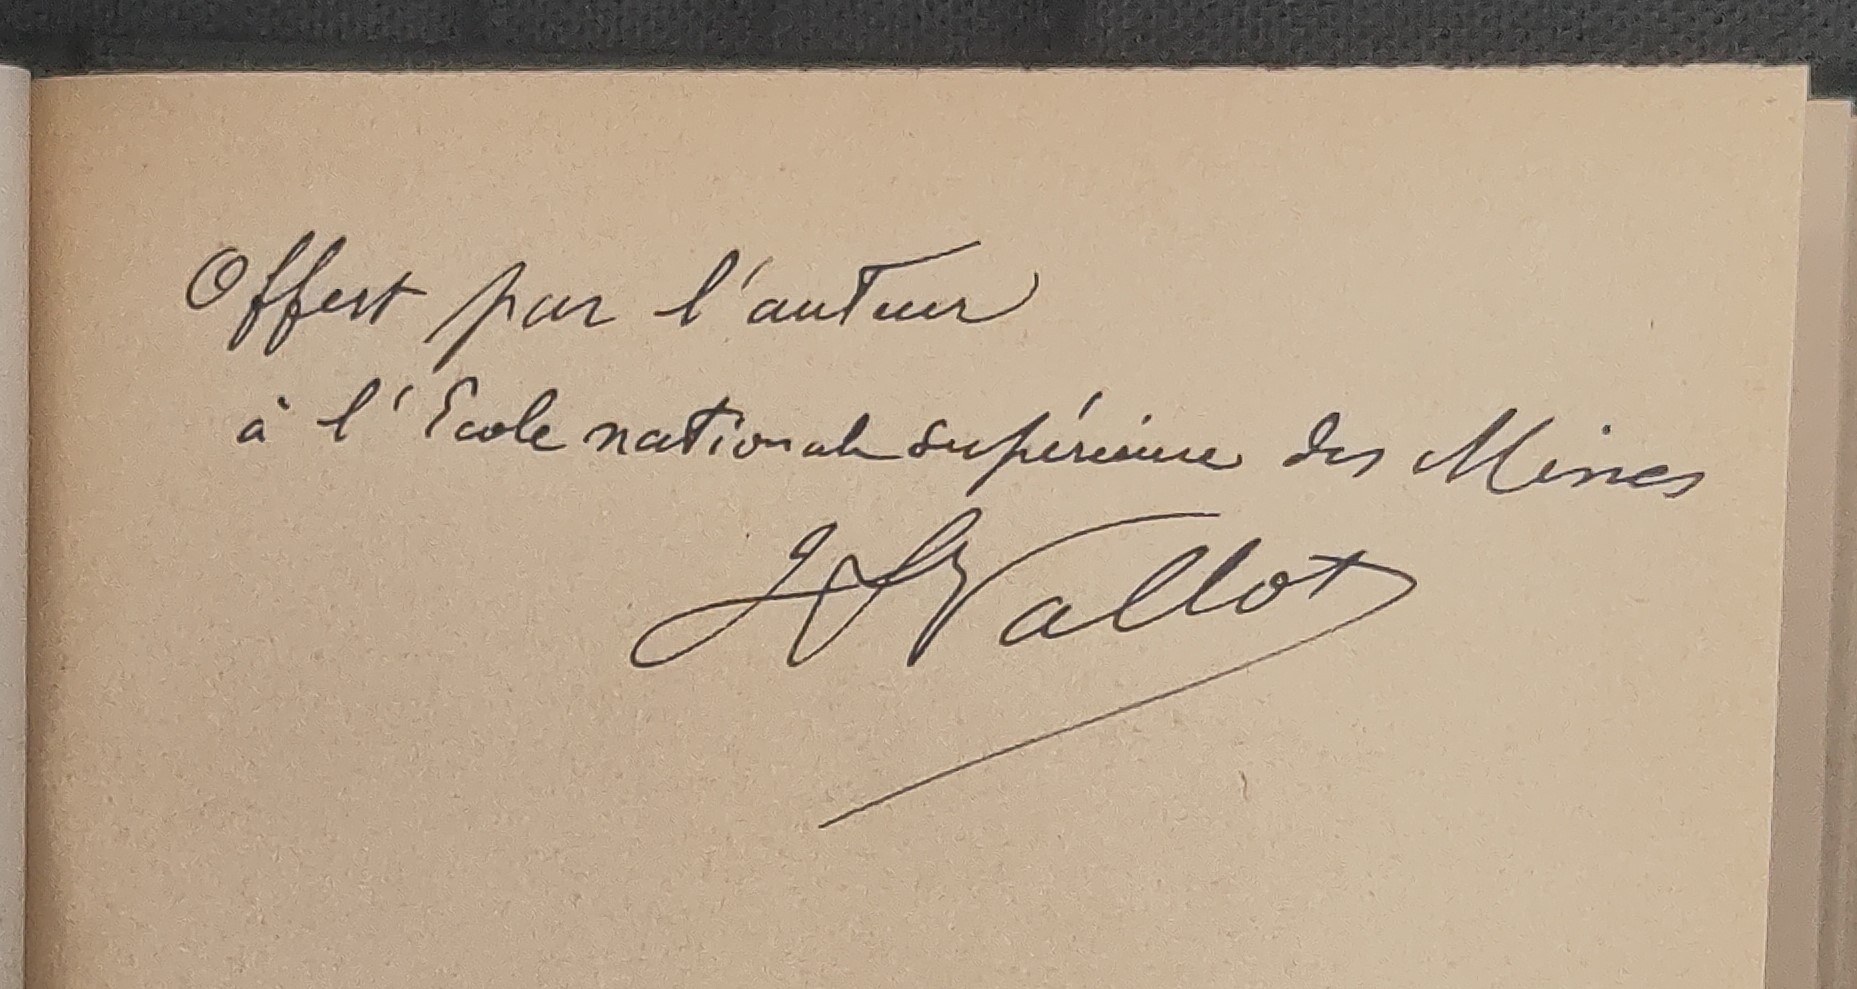 Offert par l'auteur
à l'Ecole nationale supérieure des Mines
Vallot